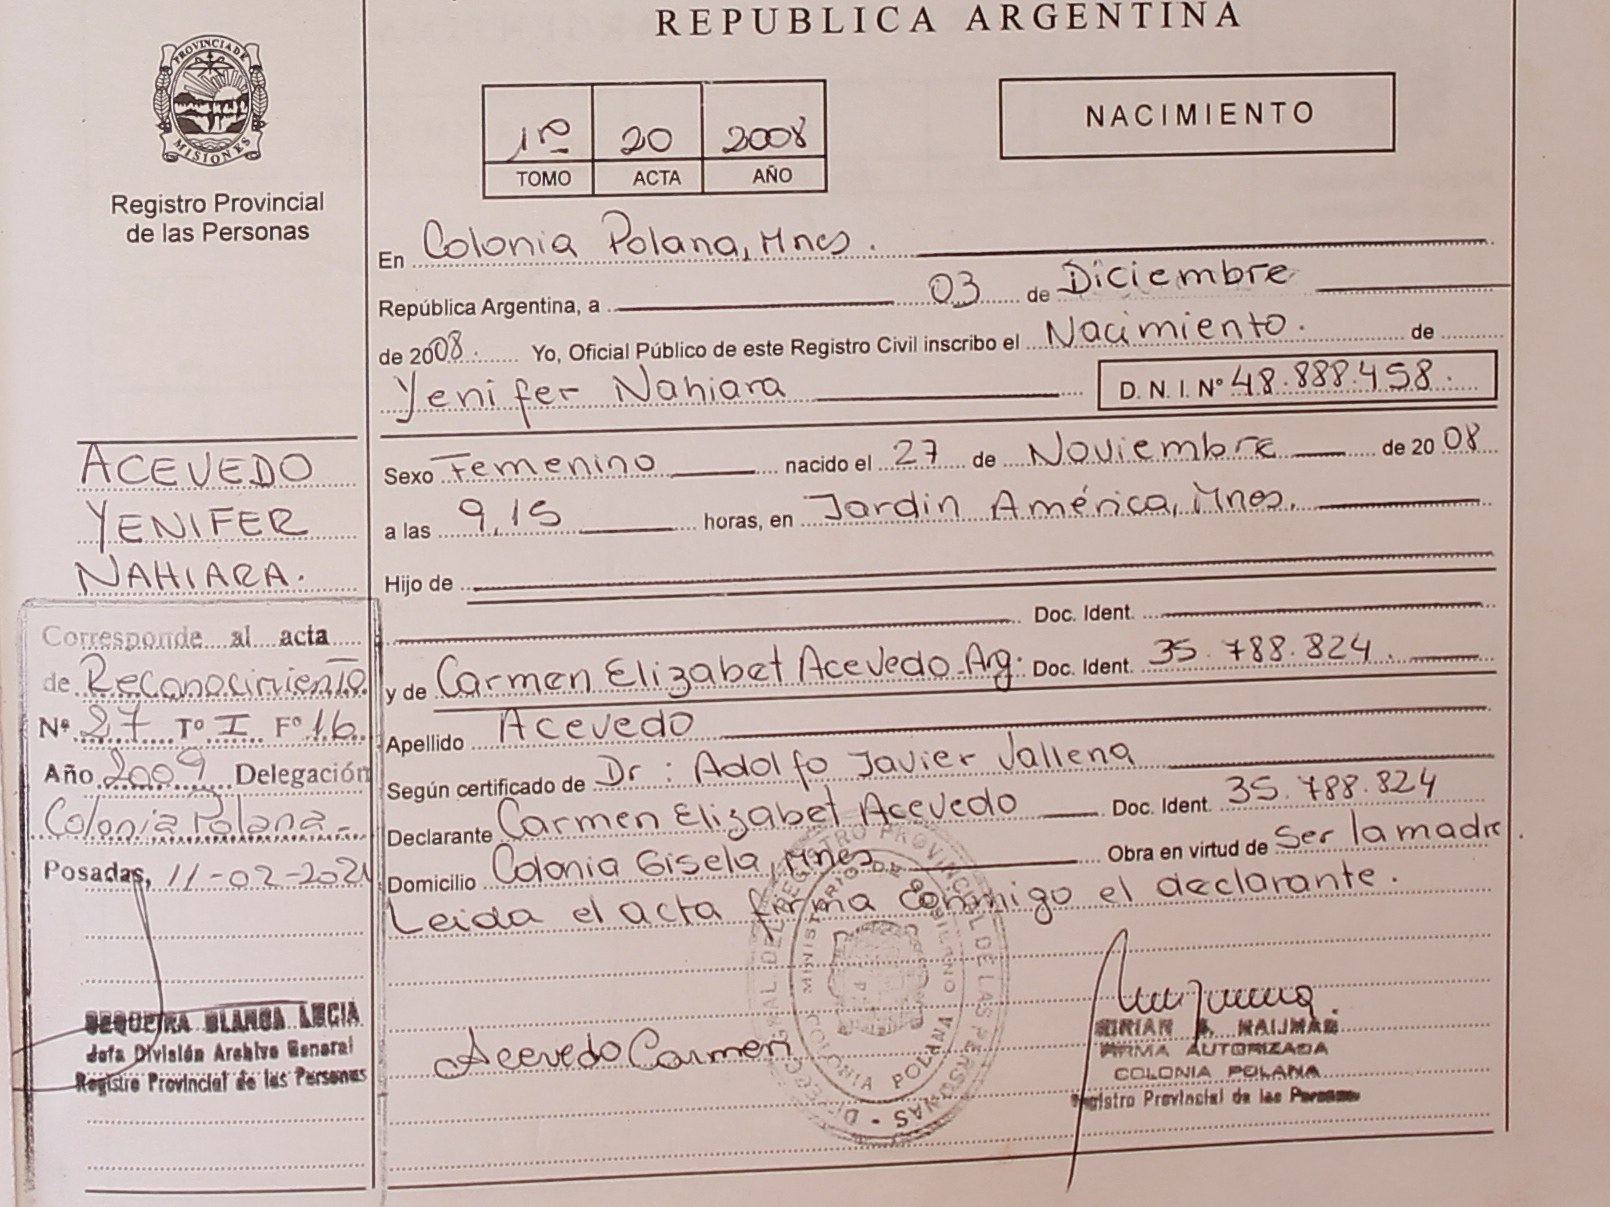 REPUBLICA ARGENTINA
PROVINCIA DE
MISIONES
Registro Provincial
de las Personas
1º 20 2008
TOMO ACTA AÑO
NACIMIENTO
En Colonia Polana, Mnes.
República Argentina, a 03 de Diciembre
de 2008. Yo, Oficial Público de este Registro Civil inscribo el Nacimiento. de
Yenifer Nahiara D. N. I. Nº 48.888.458.
Sexo Femenino nacido el 27 de Noviembre de 2008
a las 9,15 horas, en Jardin América, Mnes.
Hijo de
Doc. Ident.
y de Carmen Elizabet Acevedo. Arg. Doc. Ident. 35.788.824.
Apellido Acevedo
Según certificado de Dr: Adolfo Javier Vallena
Declarante Carmen Elizabet Acevedo Doc. Ident. 35.788.824
Domicilio Colonia Gisela, Mnes Obra en virtud de Ser la madre.
Leida el acta firma conmigo el declarante.
Acevedo Carmen
FIRMA AUTORIZADA
COLONIA POLANA
Registro Provincial de las Personas
ACEVEDO
YENIFER
NAHIARA.
Corresponde al acta
de Reconocimiento
Nº 27 Tº I Fº 16
Año 2009 Delegación
Colonia Polana-
Posadas, 11-02-2021
SEQUEIRA BLANCA LUCIA
Jefa División Archivo General
Registro Provincial de las Personas
DIRECC. GRAL. DEL REGISTRO PROVINCIAL DE LAS PERSONAS
COLONIA POLANA